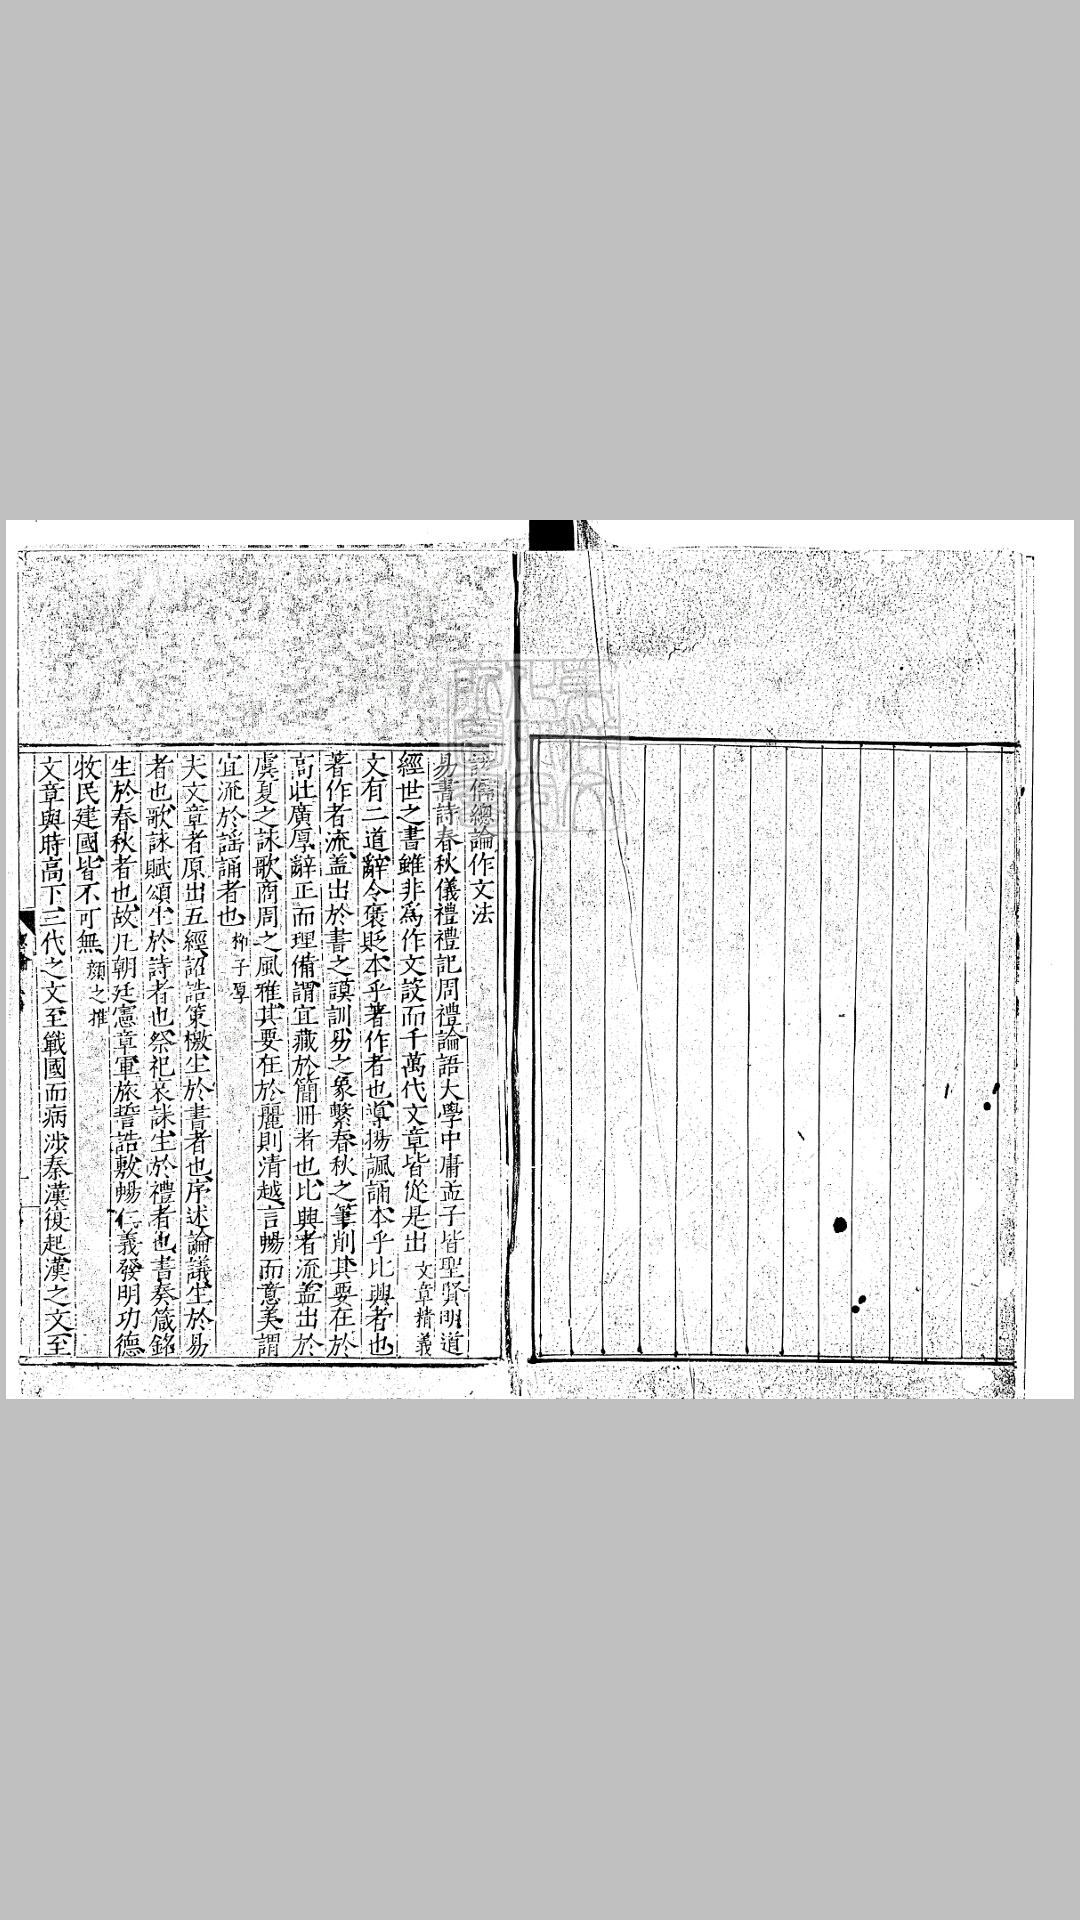 諸儒總論作文法
易書詩春秋儀禮禮記周禮論語大學中庸孟子皆聖賢明道
經世之書雖非爲作文設而千萬代文章皆從是出 文章精義
文有二道辭令褒貶本乎著作者也導揚諷誦本乎比興者也
著作者流盖出於書之謨訓易之象繫春秋之筆削其要在於
高壯廣厚辭正而理備謂宜藏於簡冊者也比興者流盖出於
虞夏之詠歌商周之風雅其要在於麗則清越言暢而意美謂
宜流於謡誦者也 柳子厚
夫文章者原出五經詔誥策檄生於書者也序述論議生於易
者也歌詠賦頌生於詩者也祭祀哀誄生於禮者也書奏箴銘
生於春秋者也故凡朝廷憲章軍旅誓誥敷暢仁義發明功德
牧民建國皆不可無 顔之推
文章與時高下三代之文至戰國而病涉秦漢復起漢之文至